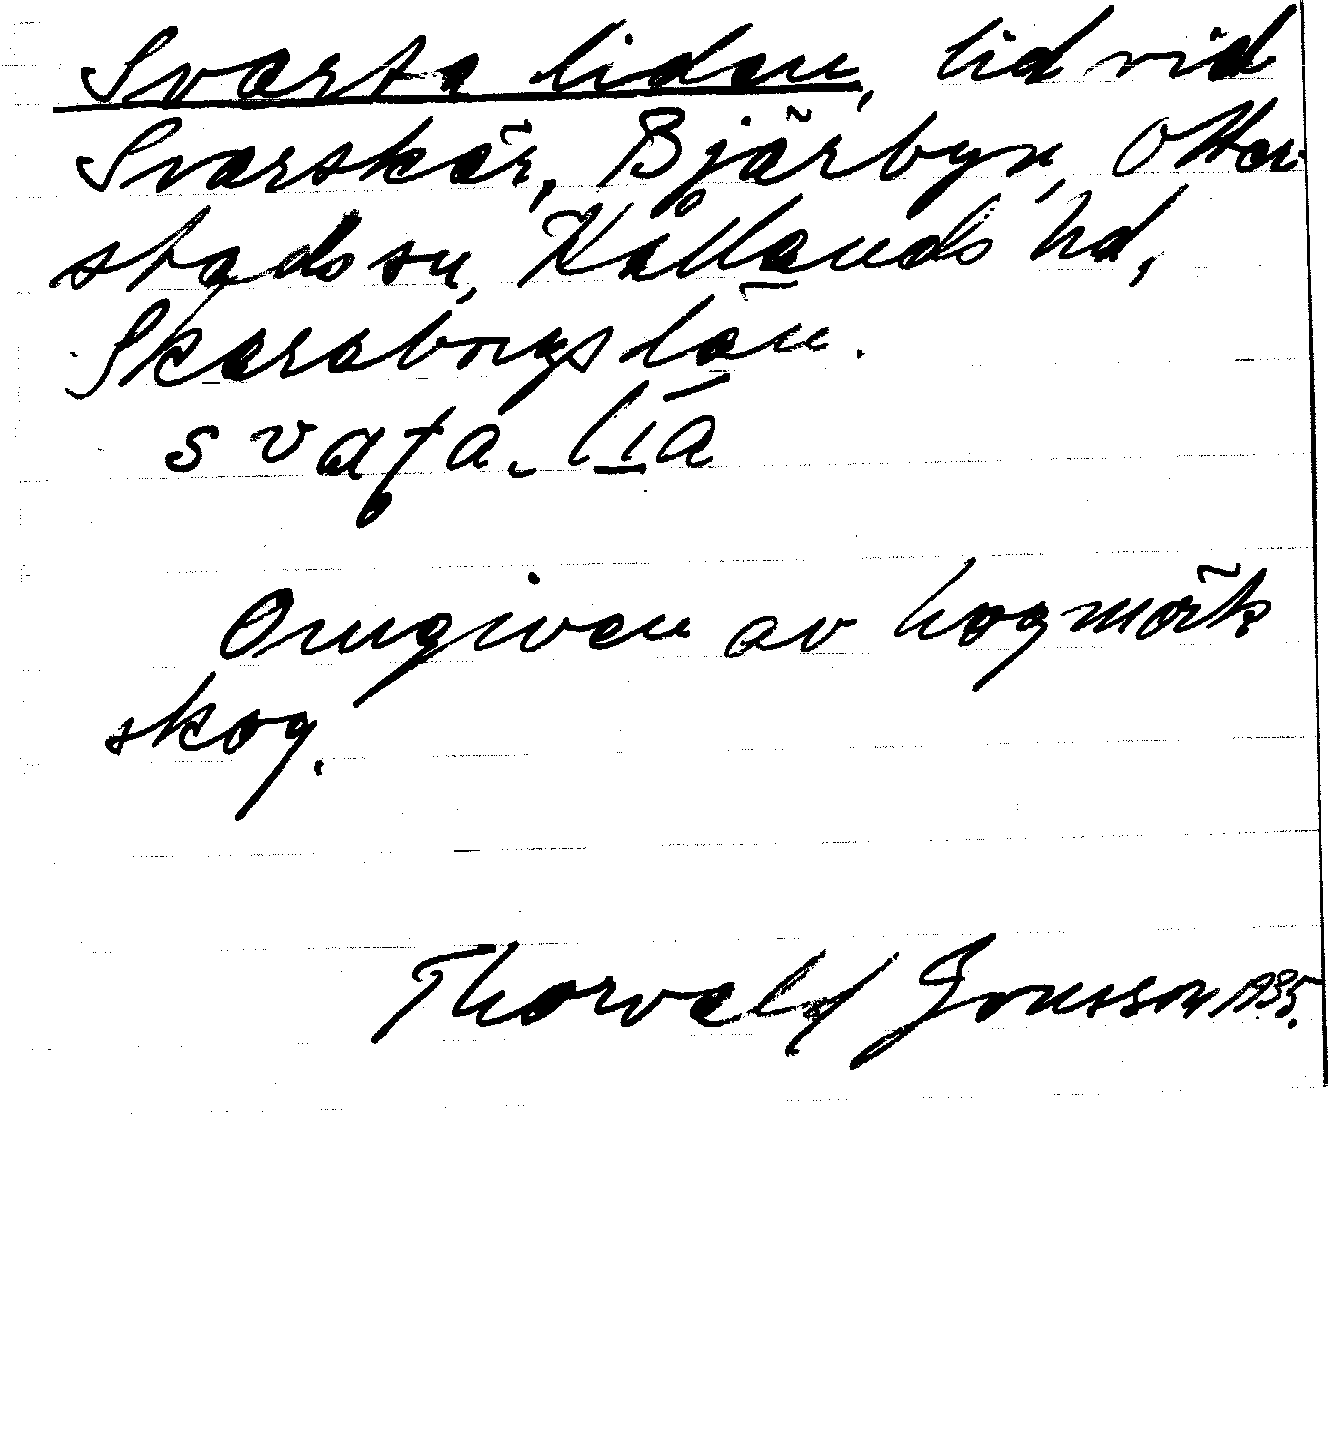 Svarta liden, lid vid
Svarskär, Bjärbyn, Otter-
stads sn, Kållands hd,
Skaraborgs län.
Omgiven av högmörk
skog.
Thorvald Jonsson 1935.